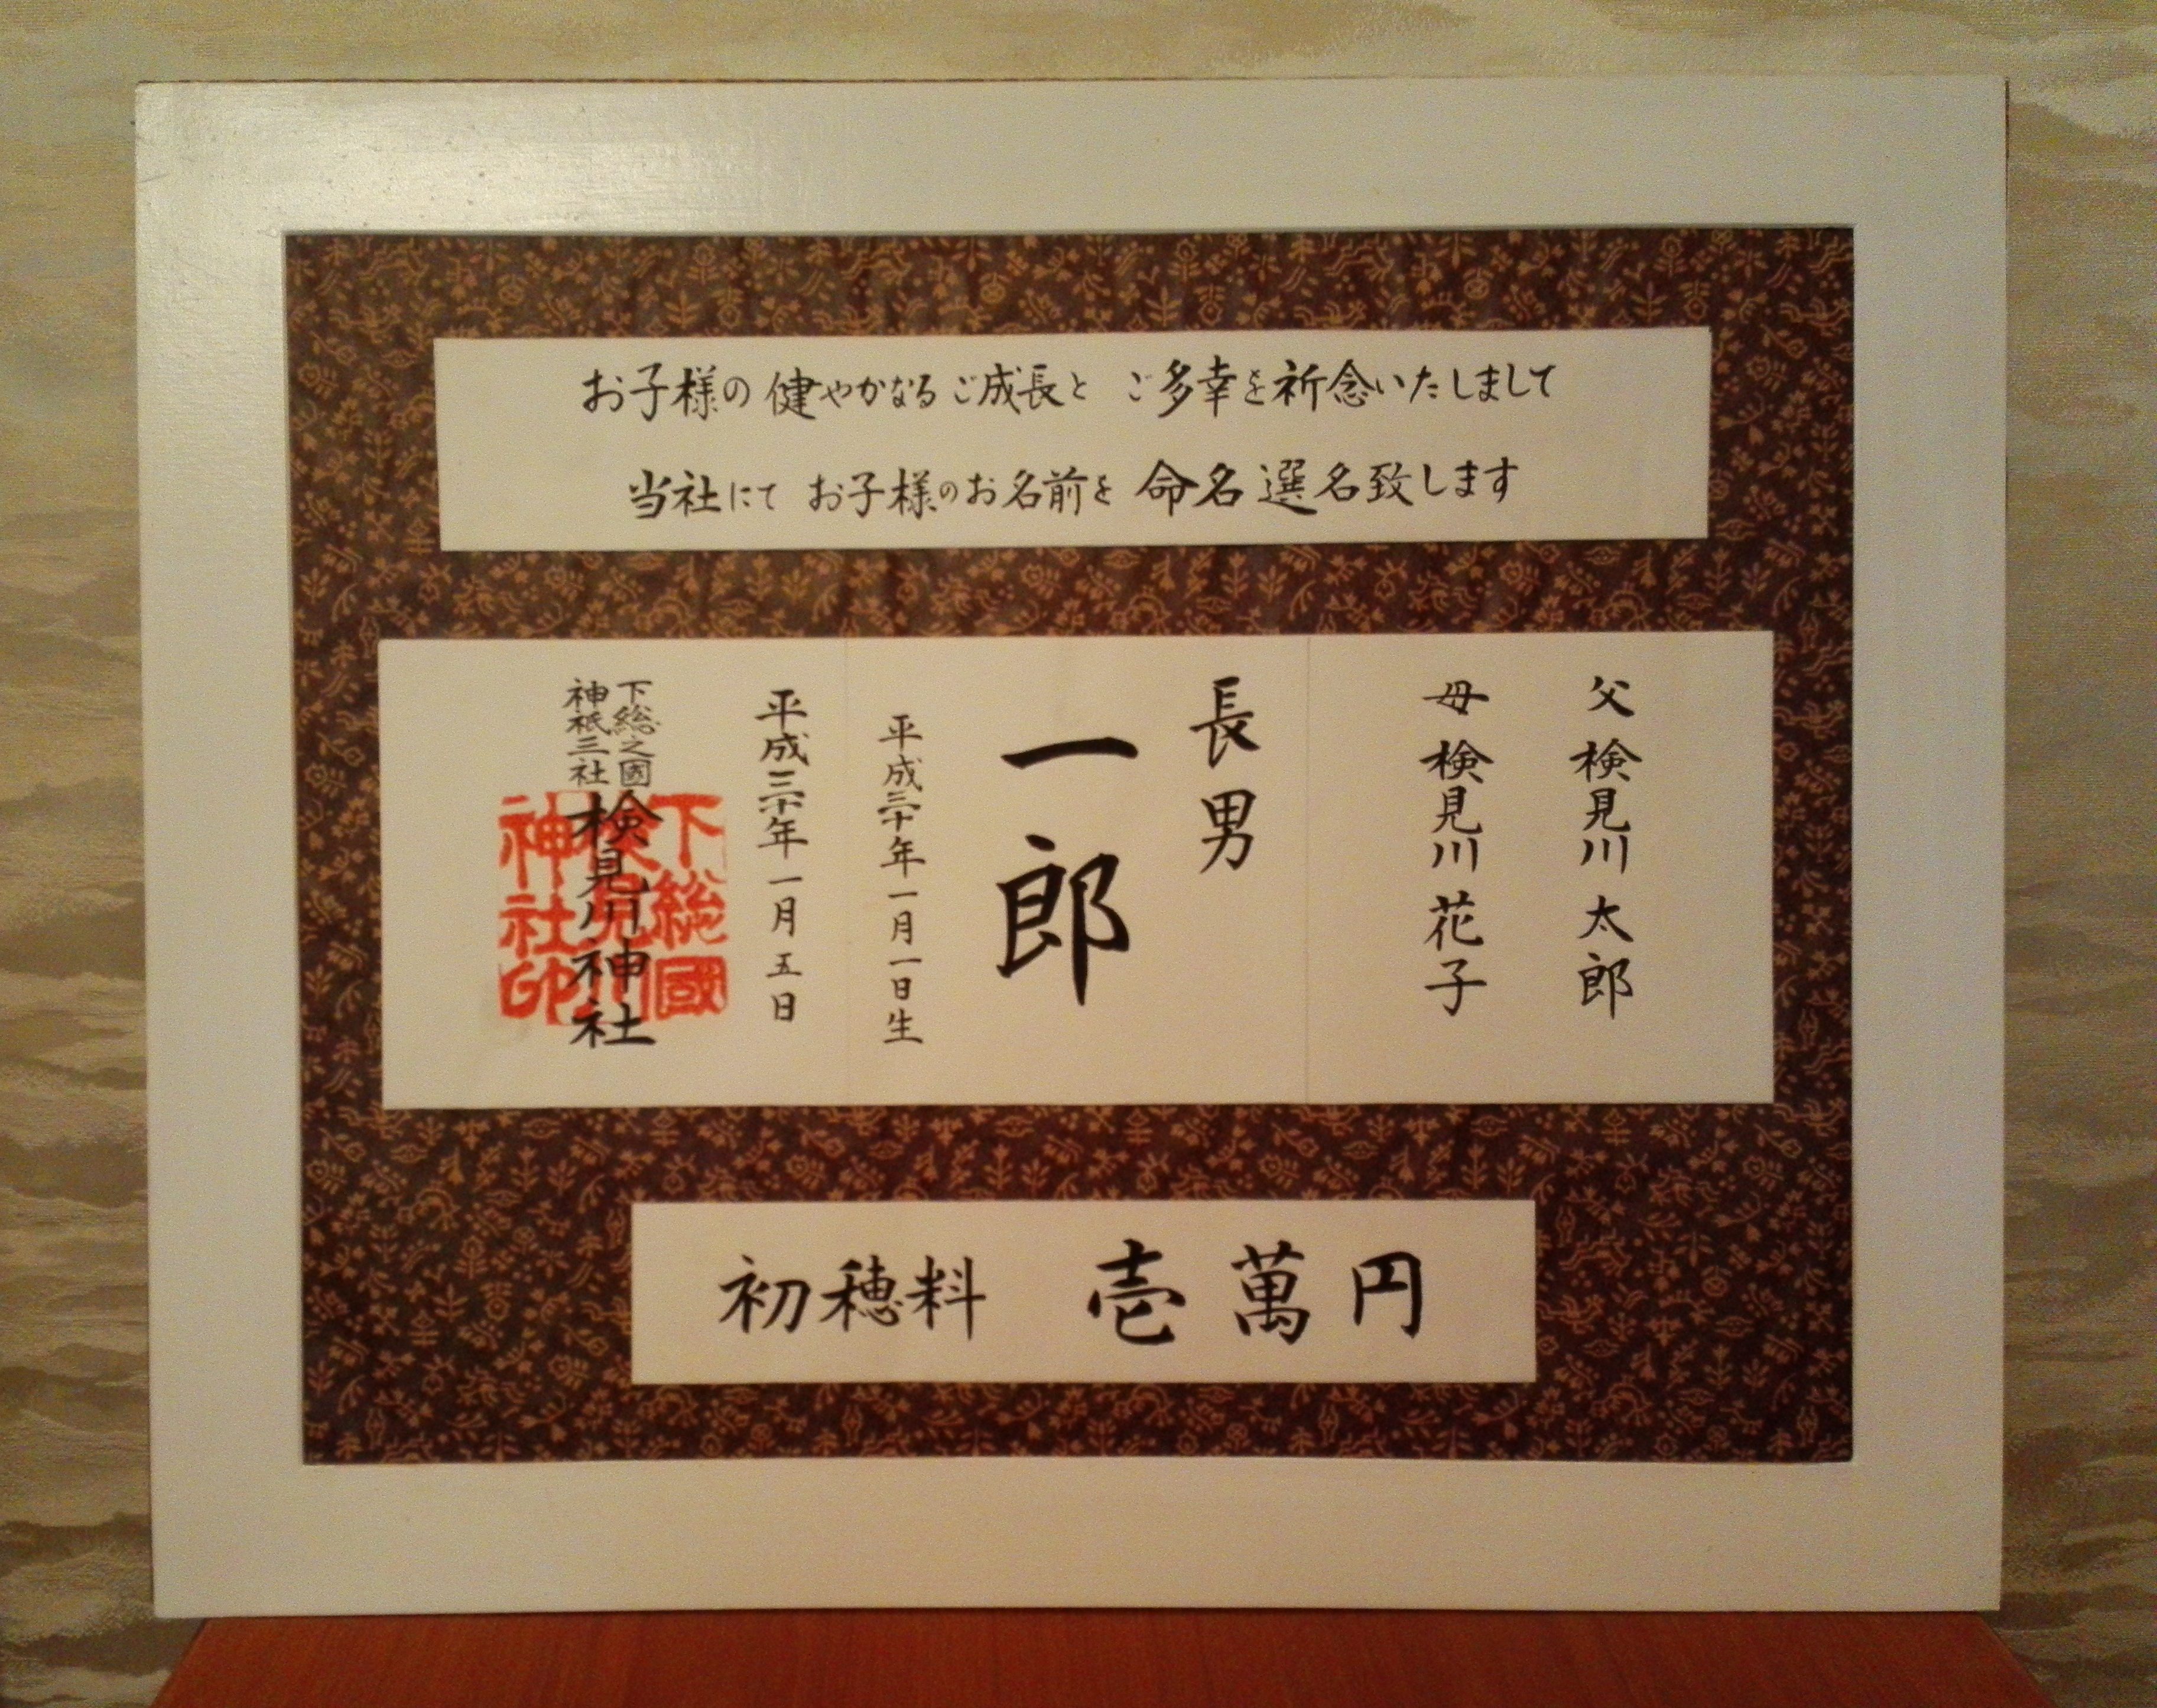 お子様の健やかなるご成長と ご多幸を祈念いたしまして
当社にて お子様のお名前を 命名選名致します
父 検見川 太郎
母 検見川 花子
長男
一郎
平成三十年一月一日生
平成三十年一月五日
下総之國
神祇三社
検見川神社
下総國
検見川
神社印
初穂料 壱萬円